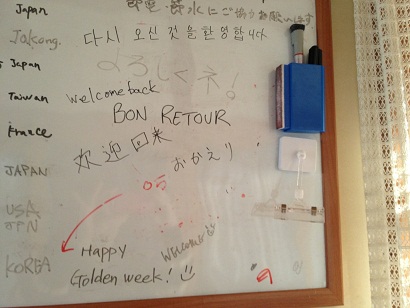 Japan
節電・節水にご協力お願いします
다시 오신 것을 환영합니다
Japan
よろしくネ。
Taiwan
welcome back
BON RETOUR
France
欢迎回来
おかえり
JAPAN
USA
JPN
KOREA
Happy
Golden week!